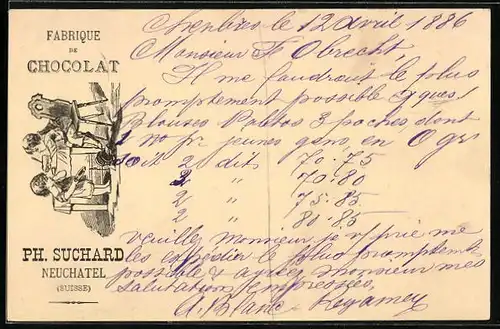 FABRIQUE
DE
CHOCOLAT
PH. SUCHARD
NEUCHATEL
(SUISSE)
Chexbres le 12 avril 1886
Monsieur F Obrecht,
Il me faudrait le plus
promptement possible qques
Blouses Paletos 3 poches, dont
2 no pr jeunes gens, en
soit 2 dits 70-75
2 " 70-80
2 " 75-85
2 " 80-85
veuillez monsieur je vs prie me
les expédier le plus promptement
possible & agréez monsieur mes
salutations empressées,
A. Blanc Legamey